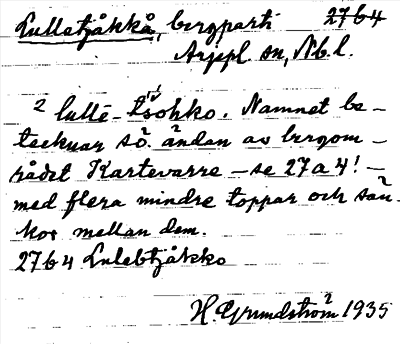 Lulletjåkkå, bergparti 27b4
Arjepl. sn, Nb.l.
2 lullē-tsohko. Namnet be-
tecknar sö. ändan av bergom-
rådet Kartevarre – se 27a4! –
med flera mindre toppar och sän-
kor mellan dem.
27b4 Lulebtjåkko
H. Grundström 1935